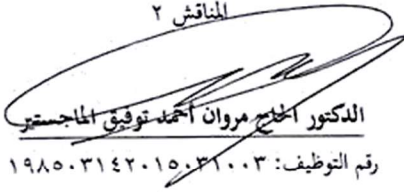 المناقش ٢
الدكتور الحاج مروان أحمد توفيق الماجستير
رقم التوظيف: ١٩٨٥٠٣١٤٢٠١٥٠٣١٠٠٣